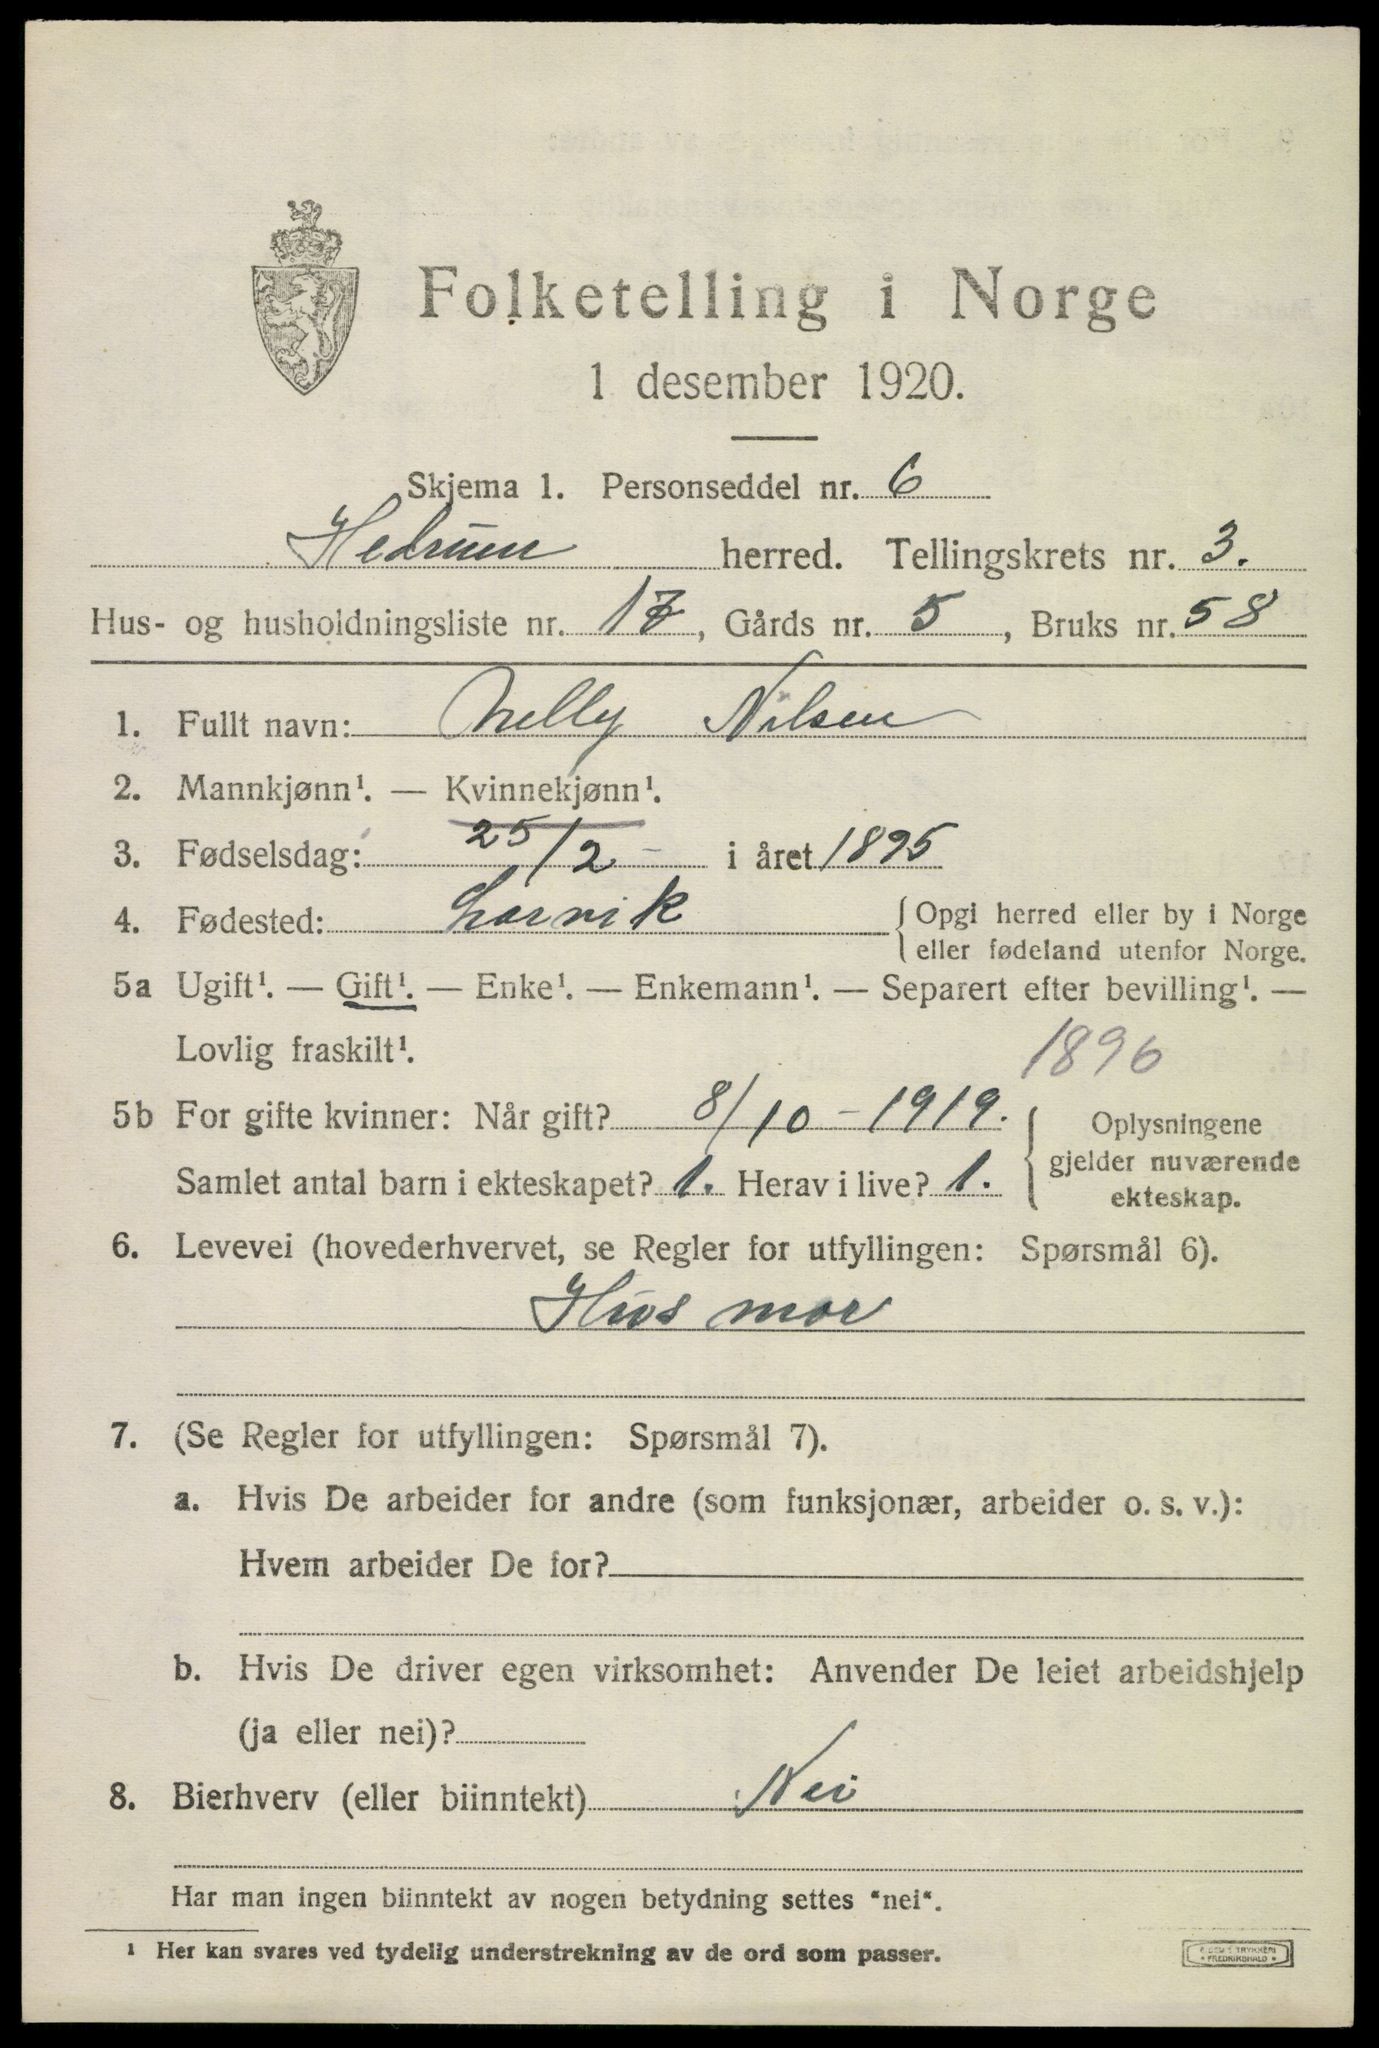 Folketelling i Norge
1 desember 1920.
Skjema 1. Personseddel nr. 6
Hedrum herred. Tellingskrets nr. 3.
Hus- og husholdningsliste nr. 17, Gårds nr. 5, Bruks nr. 58
1. Fullt navn: Nelly Nilsen
2. Mannkjønn¹. — Kvinnekjønn¹.
3. Fødselsdag: 25/2 i året 1895
4. Fødested: Larvik { Opgi herred eller by i Norge
eller fødeland utenfor Norge.
5a Ugift¹. — Gift¹. — Enke¹. — Enkemann¹. — Separert efter bevilling¹. —
Lovlig fraskilt¹.
1896
5b For gifte kvinner: Når gift? 8/10 - 1919.
Samlet antal barn i ekteskapet? 1. Herav i live? 1.
{ Oplysningene
gjelder nuværende
ekteskap.
6. Levevei (hovederhvervet, se Regler for utfyllingen: Spørsmål 6).
Hus mor
7. (Se Regler for utfyllingen: Spørsmål 7).
a. Hvis De arbeider for andre (som funksjonær, arbeider o. s. v.):
Hvem arbeider De for?
b. Hvis De driver egen virksomhet: Anvender De leiet arbeidshjelp
(ja eller nei)?
8. Bierhverv (eller biinntekt) Nei
Har man ingen biinntekt av nogen betydning settes "nei".
¹ Her kan svares ved tydelig understrekning av de ord som passer.
TRYKKERI
FREDRIKSHALD